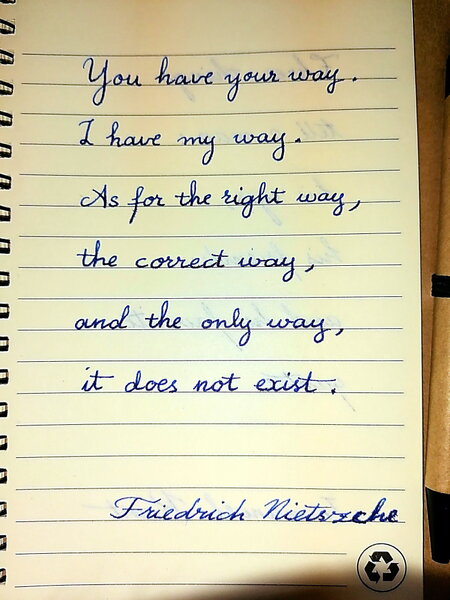 You have your way.
I have my way.
As for the right way,
the correct way,
and the only way,
it does not exist.
Friedrich Nietszche